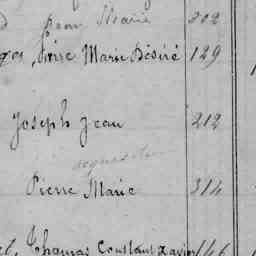 Jean Marie 302
Marie Désiré 129
Joseph Jean 212
Pierre Marie 314
Thomas Constant Xavier 146